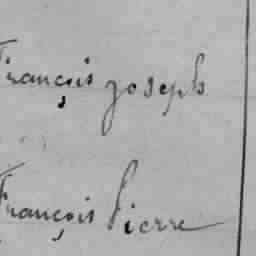 François joseph
François Pierre